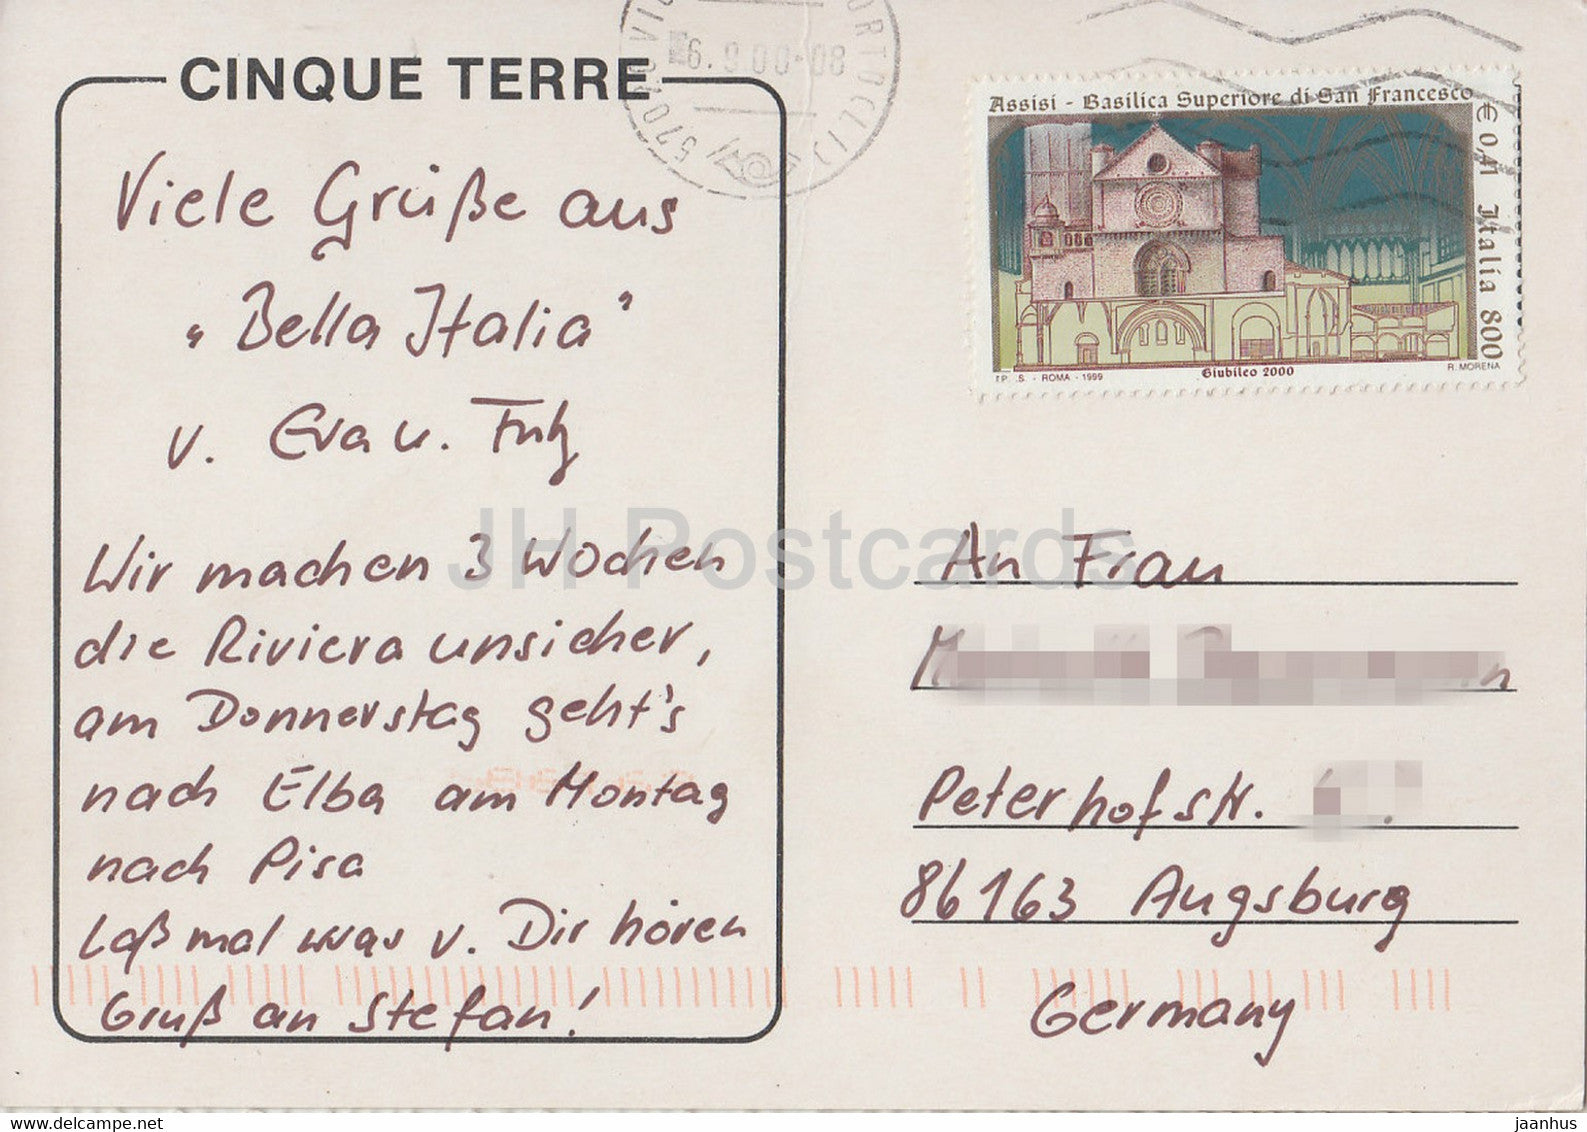 CINQUE TERRE
Viele Grüße aus
„Bella Italia“
v. Eva u. Fritz
Wir machen 3 Wochen
die Riviera unsicher,
am Donnerstag geht's
nach Elba am Montag
nach Pisa
Laß mal was v. Dir hören
Gruß an Stefan!
6.9.00-08
57038
Assisi - Basilica Superiore di San Francesco
€ 0,41 Italia 800
Giubileo 2000
ROMA - 1999
R. MORENA
JH Postcards
An Frau
Peterhofstr.
86163 Augsburg
Germany
delcampe.net
jaanhus